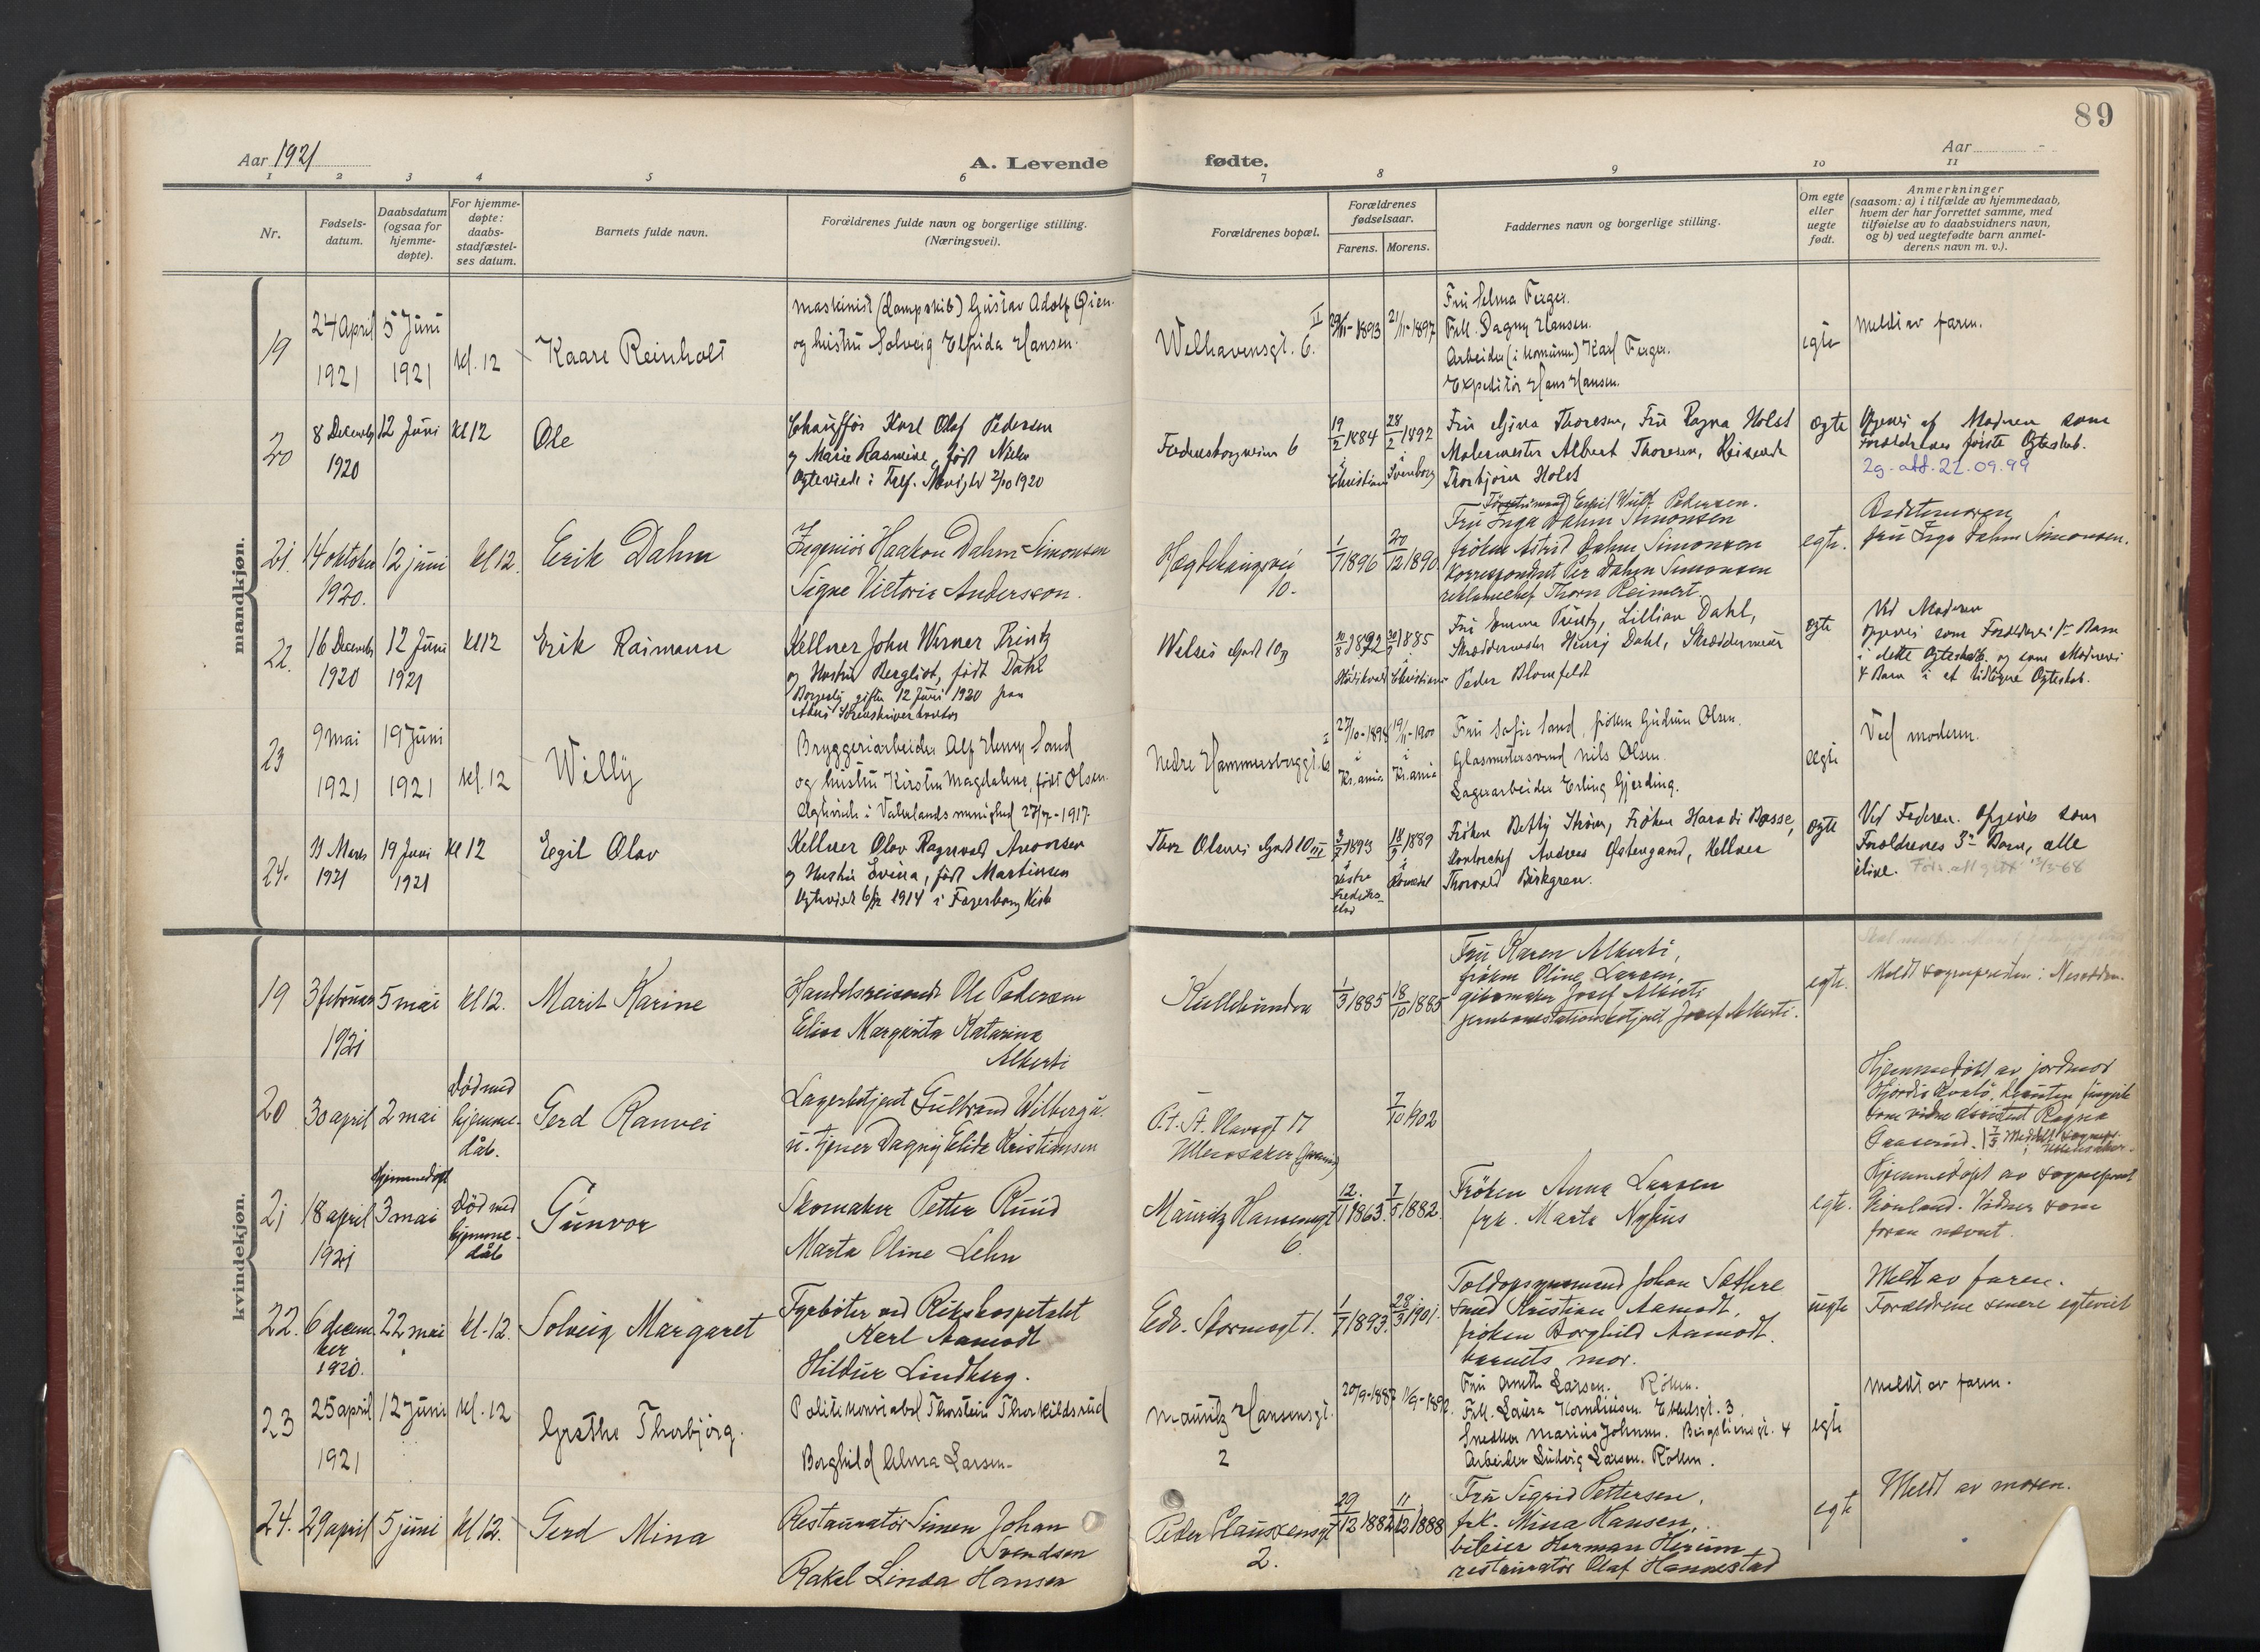 89
Aar 1921
A. Levende
fødte.
Aar
1 2 3 4 5 6 7 8 9 10 11
Nr.
Fødsels-
datum.
Daabsdatum
(ogsaa for
hjemme-
døpte).
For hjemme-
døpte:
daabs-
stadfæstel-
ses datum.
Barnets fulde navn.
Forældrenes fulde navn og borgerlige stilling.
(Næringsvei).
Forældrenes bopæl.
Forældrenes
fødselsaar.
Farens. Morens.
Faddernes navn og borgerlige stilling.
Om egte
eller
uegte
født.
Anmerkninger
(saasom: a) i tilfælde av hjemmedaab,
hvem der har forrettet samme, med
tilføielse av to daabsvidners navn,
og b) ved uegtefødte barn anmel-
derens navn m. v.).
mandkjøn.
19
24 April
1921
5 Juni
1921
kl. 12
Kaare Reinholt
Maskinist (Dampskib) Gustav Adolf Øien.
og hustru Solveig Elfrida Hansen.
Welhavensgt. 6. II
1893
21/11-1897
Fru Selma Ferger.
Frk. Dagny Hansen.
Arbeider (i komunen) Karl Ferger.
Expeditør Hans Hansen.
egte
Meldt av faren.
20
8 Decemb
1920
12 Juni
Kl 12
Ole
Chauffør Karl Olaf Pedersen
og Marie Rasmine, født
Egteviede i Menighed 2/10 1920
6
19/2 1884
i
Christiania
28/2 1892
i
Svenborg
Fru Gina Thoresen, Fru Ragna Holst
Malermester Albert Thoresen, Reisende
Thorbjørn Holst
Pedersen.
Ægte
Opgives af Moderen som
Forældrenes første Ægteskab.
2g. att. 21.09.99
21.
14 oktober
1920.
12 juni
kl 12.
Erik Dahm
Ingeniør Haakon Dahm-Simonsen
Signe Victoria Andersson.
Hægdehaugsvei
10.
1/7 1896
20/12 1890
Fru Inga Dahm Simonsen
frøken Astrid Dahm Simonsen
Korrespondent Per Dahm Simonsen
reklamechef Thorn Reimert.
egte.
Bedstemoren
fru Inga Dahm Simonsen.
22.
16 Decemb
1920
12 Juni
1921
Kl 12
Erik Raimann
Kellner John Werner Printz
og Hustru Bergliot, født Dahl
Borgerlig gifte 12 Juni 1920 fra
Akers Sorenskriverkontor
10
1892
1885
i
Christiania
Fru Printz, Lillian Dahl,
Skræddermester Henry Dahl, Skræddersvend
Peder Blomfeldt
Ægte
Ved Moderen
opgives som Forældrenes 1ste Barn
i dette Ægteskab. og som Moderens
4 Barn i et tidligere Ægteskab.
23
9 mai
1921
19 Juni
1921
kl. 12
Willy
Bryggeriarbeider Alf Henry Sand
og hustru Kirstin Magdalene, født Olsen.
Egteviede i Vaterlands menighed 1917.
Nedre Hammersborggt. 6
i
Kr.ania
19/11-1900
i
Kr.ania
Fru Sofie Sand, frøken Gudrun Olsen.
Glasmestersvend Nils Olsen.
Lagerarbeider Erling Gjerding.
egte
Ved moderen.
24.
Marts
1921
19 Juni
1921
Kl 12
Egil Olav
Kellner Olav Ragnvald Aronsen
og Hustru Lovisa, født Martinsen
Egteviede 1914 i Fagerborg Kirke
Thor Olsens Gade 10 III
3/7 1893
i
Vestre
Fredriks-
stad
18/9 1889
i
Frøken Betty Strøm, Frøken Haradi Bosse,
Kontorchef Andreas Østergaard, Kellner
Thorvald Birkgren.
Ægte
Ved Faderen. Opgives som
Forældrenes 3die Barn, alle
ilive.
kvindekjøn.
19
3 februar
1921
5 mai
kl 12.
Marit Karine
Handelsreisende Ole Pedersen
Elisa Margarita Katarina
Alberti
Kullebunden
1/3 1885
18/10 1885
Fru Karen Alberti,
frøken Oline Larsen.
gibsmaker Josef Alberti
jernbanestationsbetjent Josef Alberti.
egte.
Meldt sogneprester: Nesodden.
20
30 april
2 mai
Død med
hjemme-
dåb.
Gerd Ranvei
Lagerbetjent Gulbrand Wilberg u.
u. tjener Dagny Elida Kristiansen
P.t. St. Olavsgt 17
Ullensaker
7/10 1902
Hjemmedøbt av jordmor
Ragna
21
18 april
1921
Hjemmedøpt
3 mai
Død med
hjemme-
dåb
Gunvor
Skomaker Petter Ruud
Marta Oline Lehn
Mauritz Hansensgt
6.
12/1 1863.
7/5 1882.
Frøken Anna Larsen
frk. Marta Nyhus
egte.
Hjemmedøpt av sogneprest
Vidner som
foran nævnt.
22.
6 decem-
ber
1920.
22 mai
kl. 12.
Solveig Margaret
Fyrbøter ved Rikshospitalet
Karl Aamodt
Hildur Lindberg.
Edv. Stormsgt 1.
1/7 1893.
28/3 1901.
Toldopsynsmand Johan Sathre
smed Kristian Aamodt,
frøken Borghild Aamodt.
barnets mor.
uegte
Meldt av faren.
Forældrene senere egteviet
23
25 april
1921
12 Juni
kl. 12
Grethe Thorbjørg.
Politikonstabel Thorstein Thorkildsrud
Borghild Alma Larsen.
Mauritz Hansensgt.
2
20/9-1887
Fru Anette Larsen. Røken.
Frk. Laura Korneliusen. 3
Snedker Marius Johnsen. Bergsliensgt. 4
Arbeider Ludvig Larsen. Røken.
egte
Meldt av faren.
24.
29 april
5 juni
kl 12.
Gerd Mina
Restauratør Simen Johan
Svendsen
Rakel Linda Hansen
Peder Claussensgt
2.
29/12 1882
11/12 1888
Fru Sigrid Pettersen,
frk. Mina Hansen,
bileier Herman Herum
restauratør Olaf Hannestad
egte
Meldt av moren.